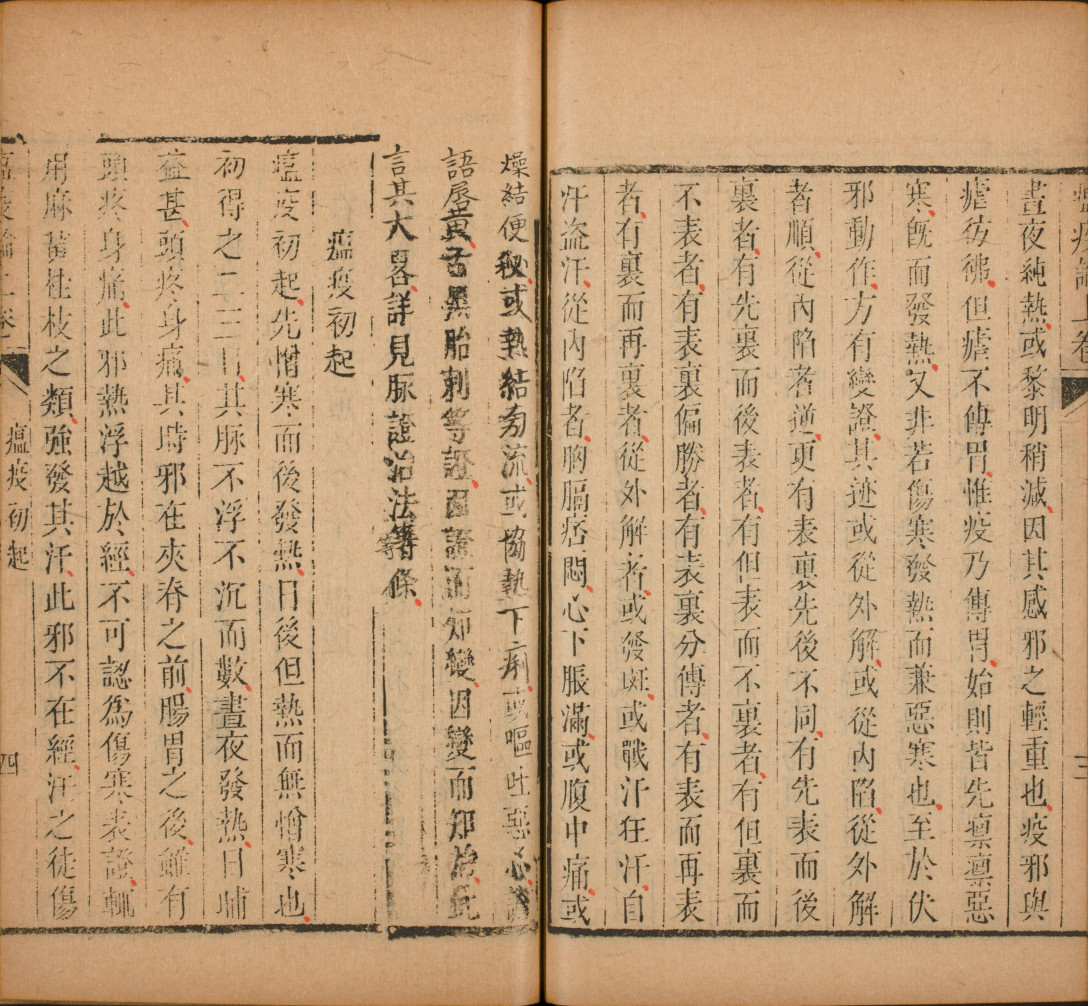 瘟疫論上卷
三
晝夜純熱或黎明稍減因其感邪之輕重也疫邪與
瘧彷彿但瘧不傳胃惟疫乃傳胃始則皆先凛凛惡
寒旣而發熱又非若傷寒發熱而兼惡寒也至於伏
邪動作方有變證其迹或從外解或從內陷從外解
者順從內陷者逆更有表裏先後不同有先表而後
裏者有先裏而後表者有但表而不裏者有但裏而
不表者有表裏偏勝者有表裏分傳者有表而再表
者有裏而再裏者從外解者或發斑或戰汗狂汗自
汗盗汗從內陷者胸膈痞悶心下脹滿或腹中痛或
燥結便秘或熱結旁流或協熱下痢或嘔吐惡心譫
語唇黃舌黑胎刺等證因證而知變因變而知治此
言其大畧詳見脉證治法等條
等
瘟疫初起
瘟疫初起先憎寒而後發熱日後但熱而無憎寒也
初得之二三日其脉不浮不沉而數晝夜發熱日晡
益甚頭疼身痛其時邪在夾脊之前腸胃之後雖有
頭疼身痛此邪熱浮越於經不可認爲傷寒表證輒
用麻黃桂枝之類強發其汗此邪不在經汗之徒傷
瘟疫論上卷
瘟疫初起
四